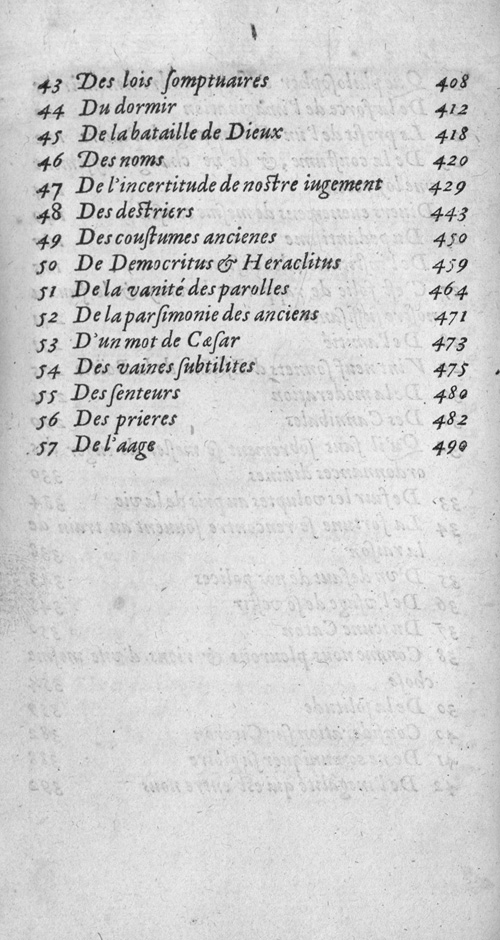 43 Des lois ſomptuaires 408
44 Du dormir 412
45 De la bataille de Dieux 418
46 Des noms 420
47 De l'incertitude de noſtre iugement 429
48 Des deſtriers 443
49 Des couſtumes ancienes 450
50 De Democritus & Heraclitus 459
51 De la vanité des parolles 464
52 De la parſimonie des anciens 471
53 D'un mot de Cæſar 473
54 Des vaines ſubtilites 475
55 Des ſenteurs 480
56 Des prieres 482
57 De l'aage 490